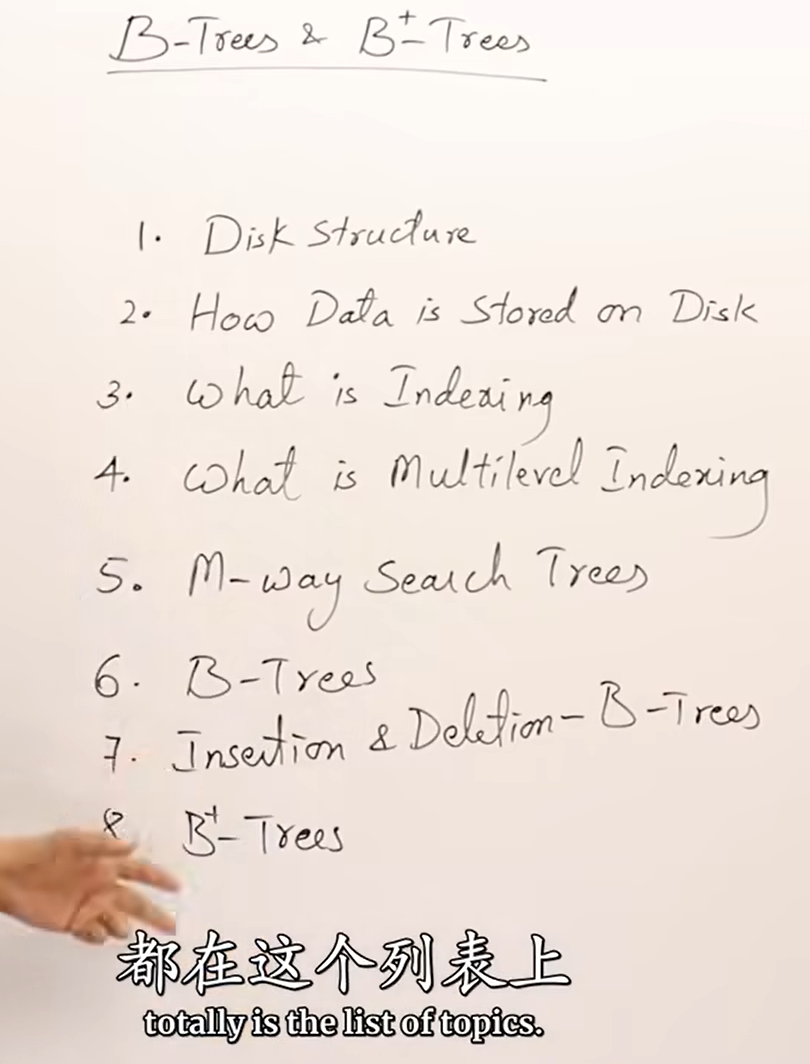 B-Trees & B+-Trees
1. Disk Structure
2. How Data is Stored on Disk
3. What is Indexing
4. What is Multilevel Indexing
5. M-way Search Trees
6. B-Trees
7. Insertion & Deletion- B-Trees
8 B+-Trees
都在这个列表上
totally is the list of topics.